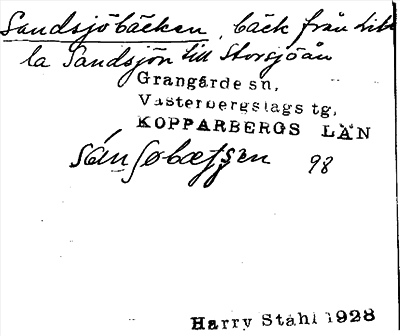 Sandsjöbäcken, bäck från Lil
la Sandsjön till Storsjöån
Grangärde sn,
Västerbergslags tg,
KOPPARBERGS LÄN
98
Harry Ståhl 1928